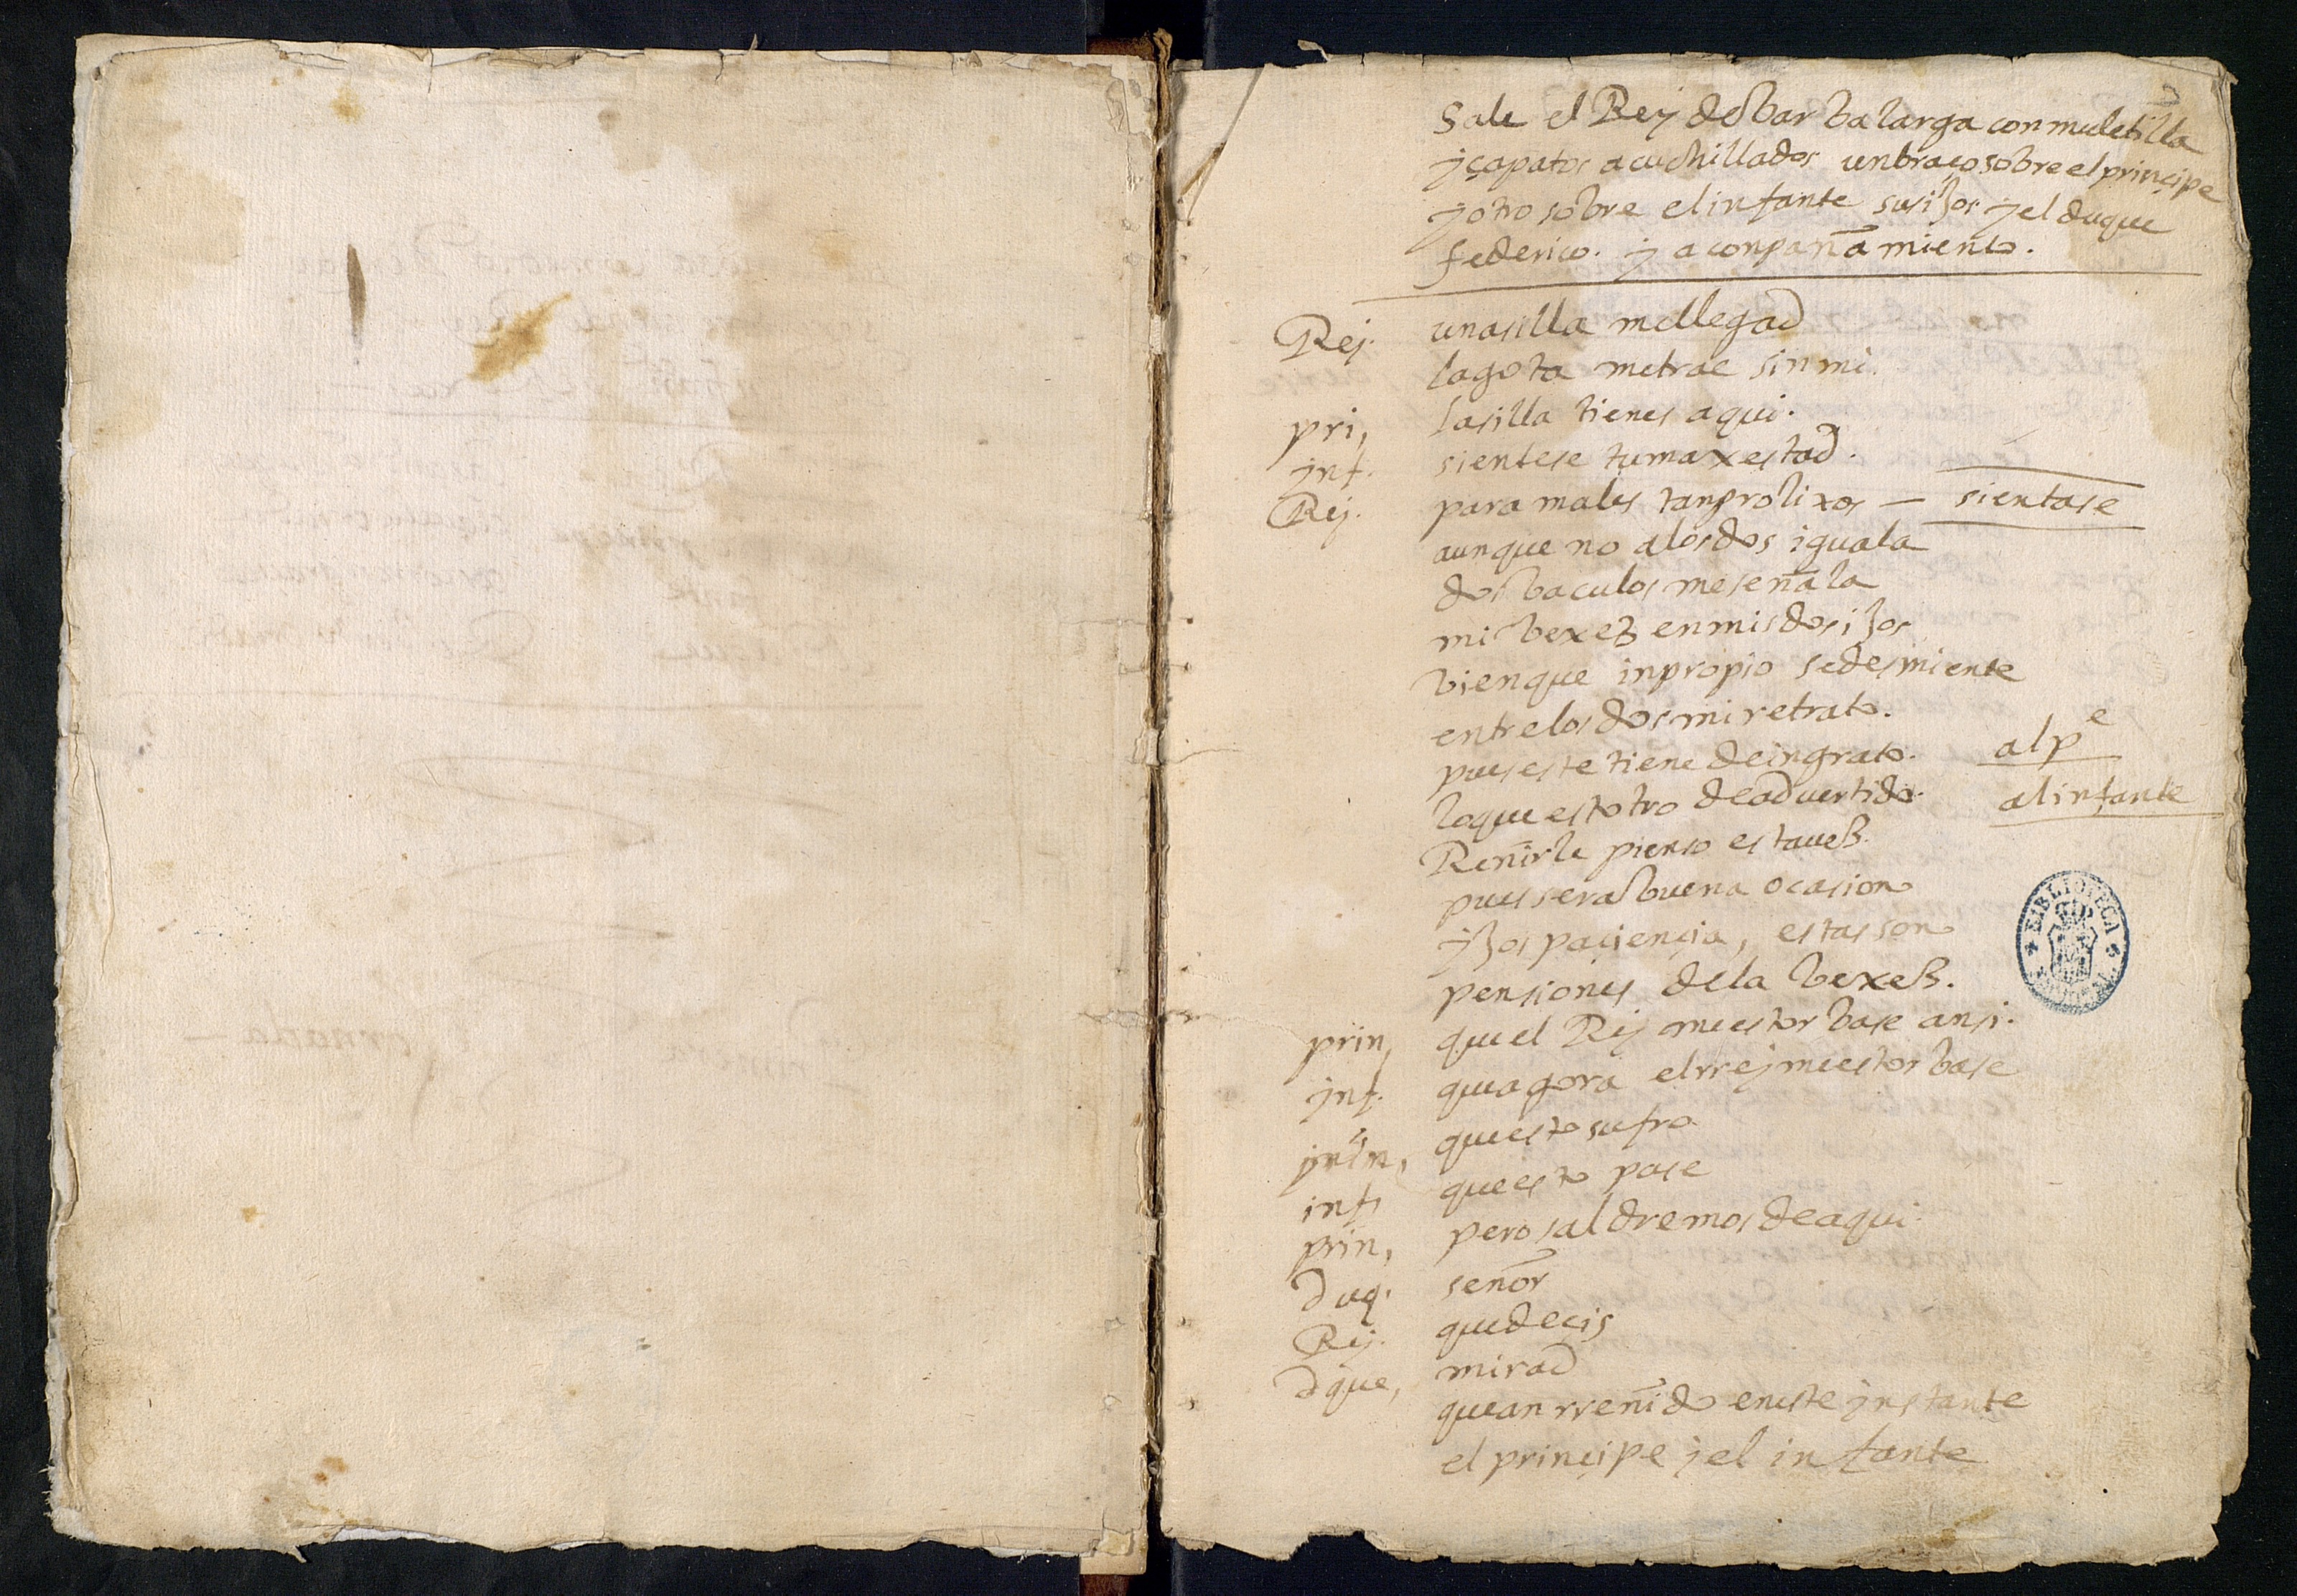 Sale el Rey de barba larga con muletilla
y çapatos acuchillados un braço sobre el prinçipe
y otro sobre el infante sus iJos y el duque
federico. y aconpañamiento.
Rey. una silla me llegad
la gota me trae sin mi.
pri, la silla tienes aqui.
inf. sientese tu maxestad.
Rey. para males tan prolixos — sientase
aunque no a los dos iguala
dos baculos me señala
mi bexez en mis dos iJos
bien que inpropio se desmiente
entre los dos mi retrato.
pues este tiene de ingrato. al pe
lo que estotro de advertido. al infante
Reñirle pienso esta vez.
pues sera buena ocasion
iJos paçiençia, estas son
pensiones de la bexez.
prin, quel Rey me estorbase ansi.
inf. que agora el rrey me estorbase
prin, questo sufra
inf, que esto pase
prin, pero saldremos de aqui.
duq. señor
Rey. que deçis
dque, mirad
que an rreñido en este instante
el prinçipe y el infante
BIBLIOTECA